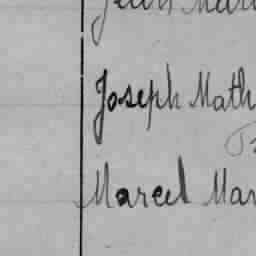 Jean Mari
Joseph Math
Marcel Mar